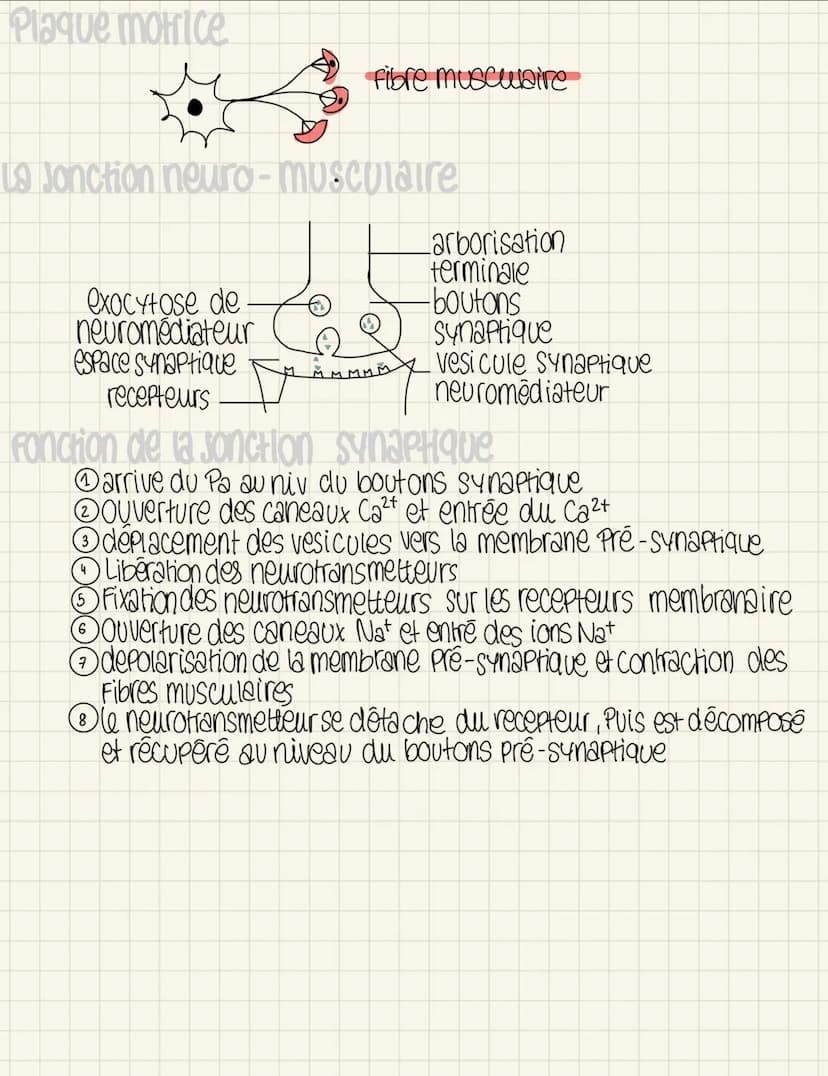 Plaque motrice
Fibre musculaire
La Jonction neuro - musculaire
arborisation
terminale
exocytose de
neuromédiateur
boutons
synaptique
espace synaptique
recepteurs
vesicule synaptique
neuromédiateur
Fonction de la Jonction synaptique
① arrive du Pa au niv du boutons synaptique
② ouverture des caneaux Ca²⁺ et entrée du Ca²⁺
③ déplacement des vesicules vers la membrane Pré-synaptique
④ Libération des neurotransmetteurs
⑤ Fixation des neurotransmetteurs sur les recepteurs membranaire
⑥ Ouverture des caneaux Na⁺ et entré des ions Na⁺
⑦ depolarisation de la membrane Pré-synaptique et contraction des
Fibres musculaires
⑧ le neurotransmetteur se détache du recepteur, Puis est décomposé
et récupéré au niveau du boutons pré-synaptique